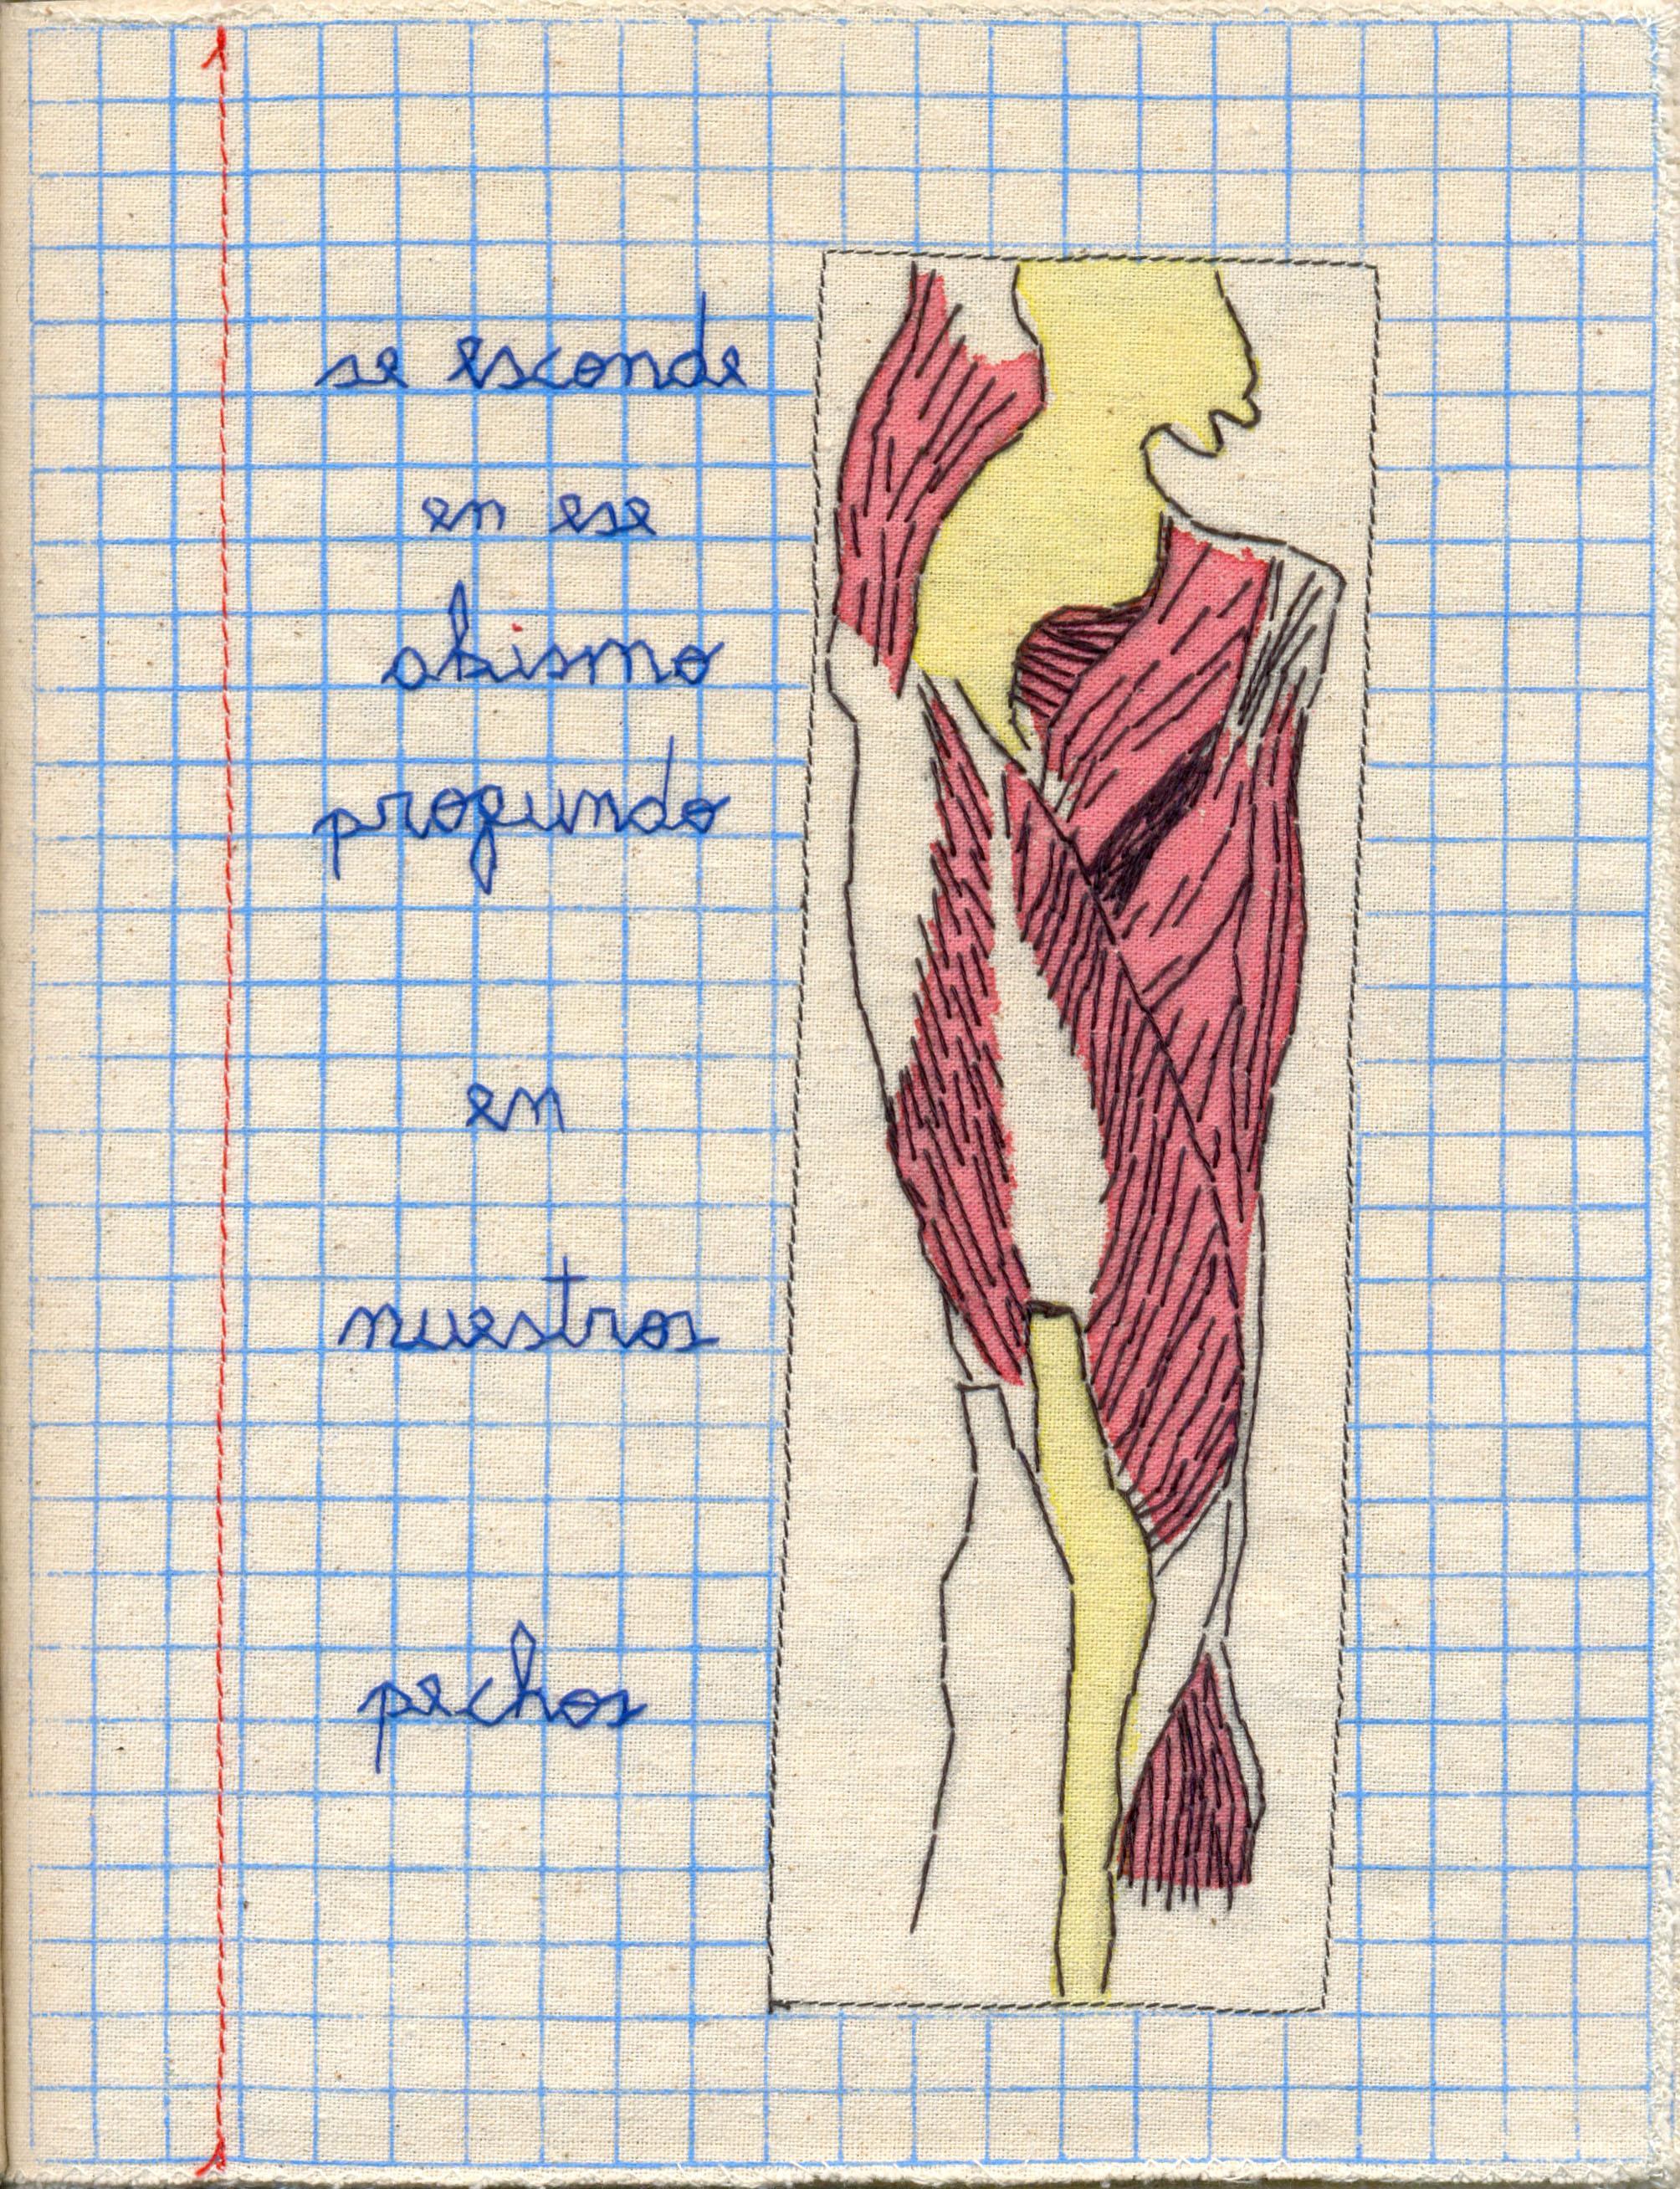 se esconde
en ese
abismo
profundo
en
nuestros
pechos